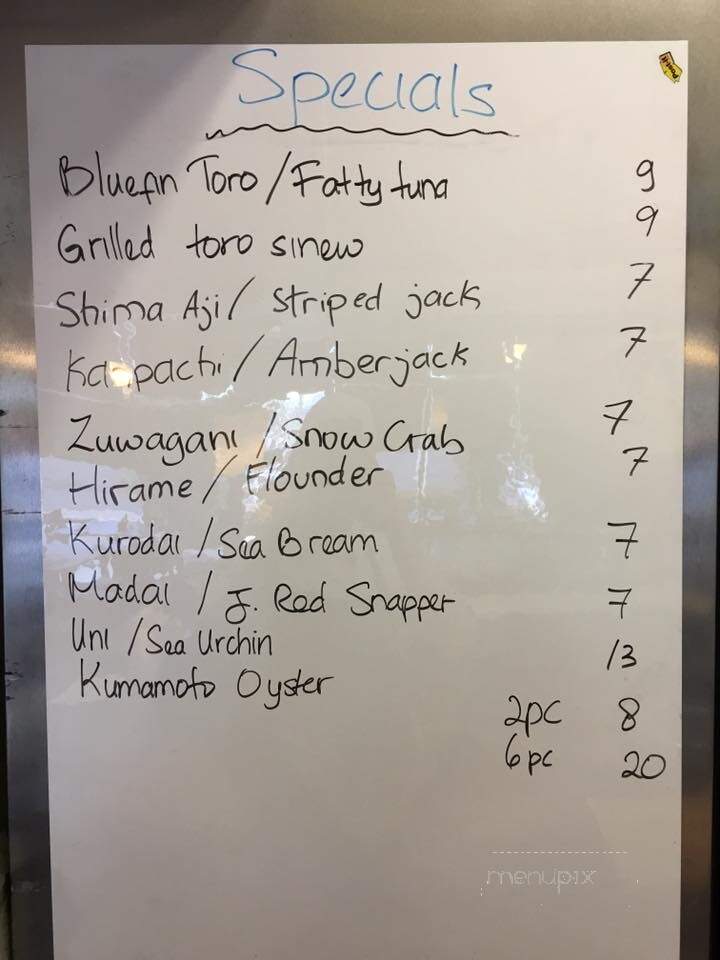 Specials
Bluefin Toro / Fatty tuna 9
Grilled toro sinew 9
Shima Aji / Striped jack 7
Kanpachi / Amberjack 7
Zuwagani / Snow Crab 7
Hirame / Flounder 7
Kurodai / Sea Bream 7
Madai / J. Red Snapper 7
Uni / Sea Urchin 13
Kumamoto Oyster
2pc 8
6pc 20
menupix